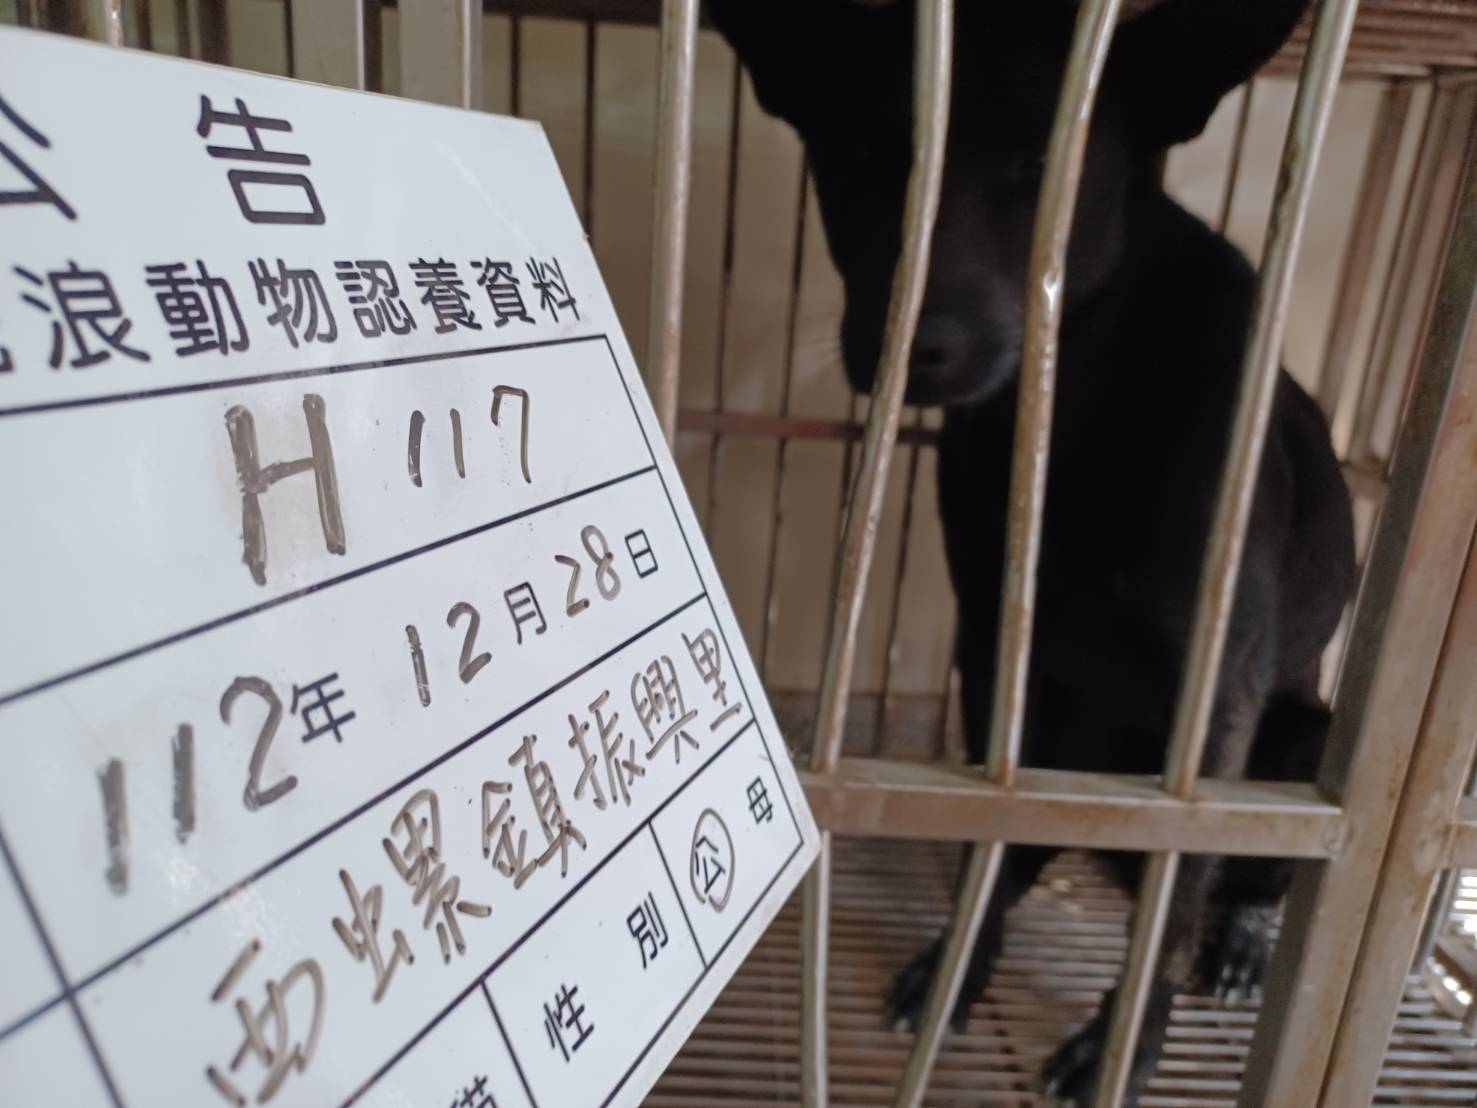 公告
流浪動物認養資料
H 117
112年 12月28日
西螺鎮振興里
性別 公 母